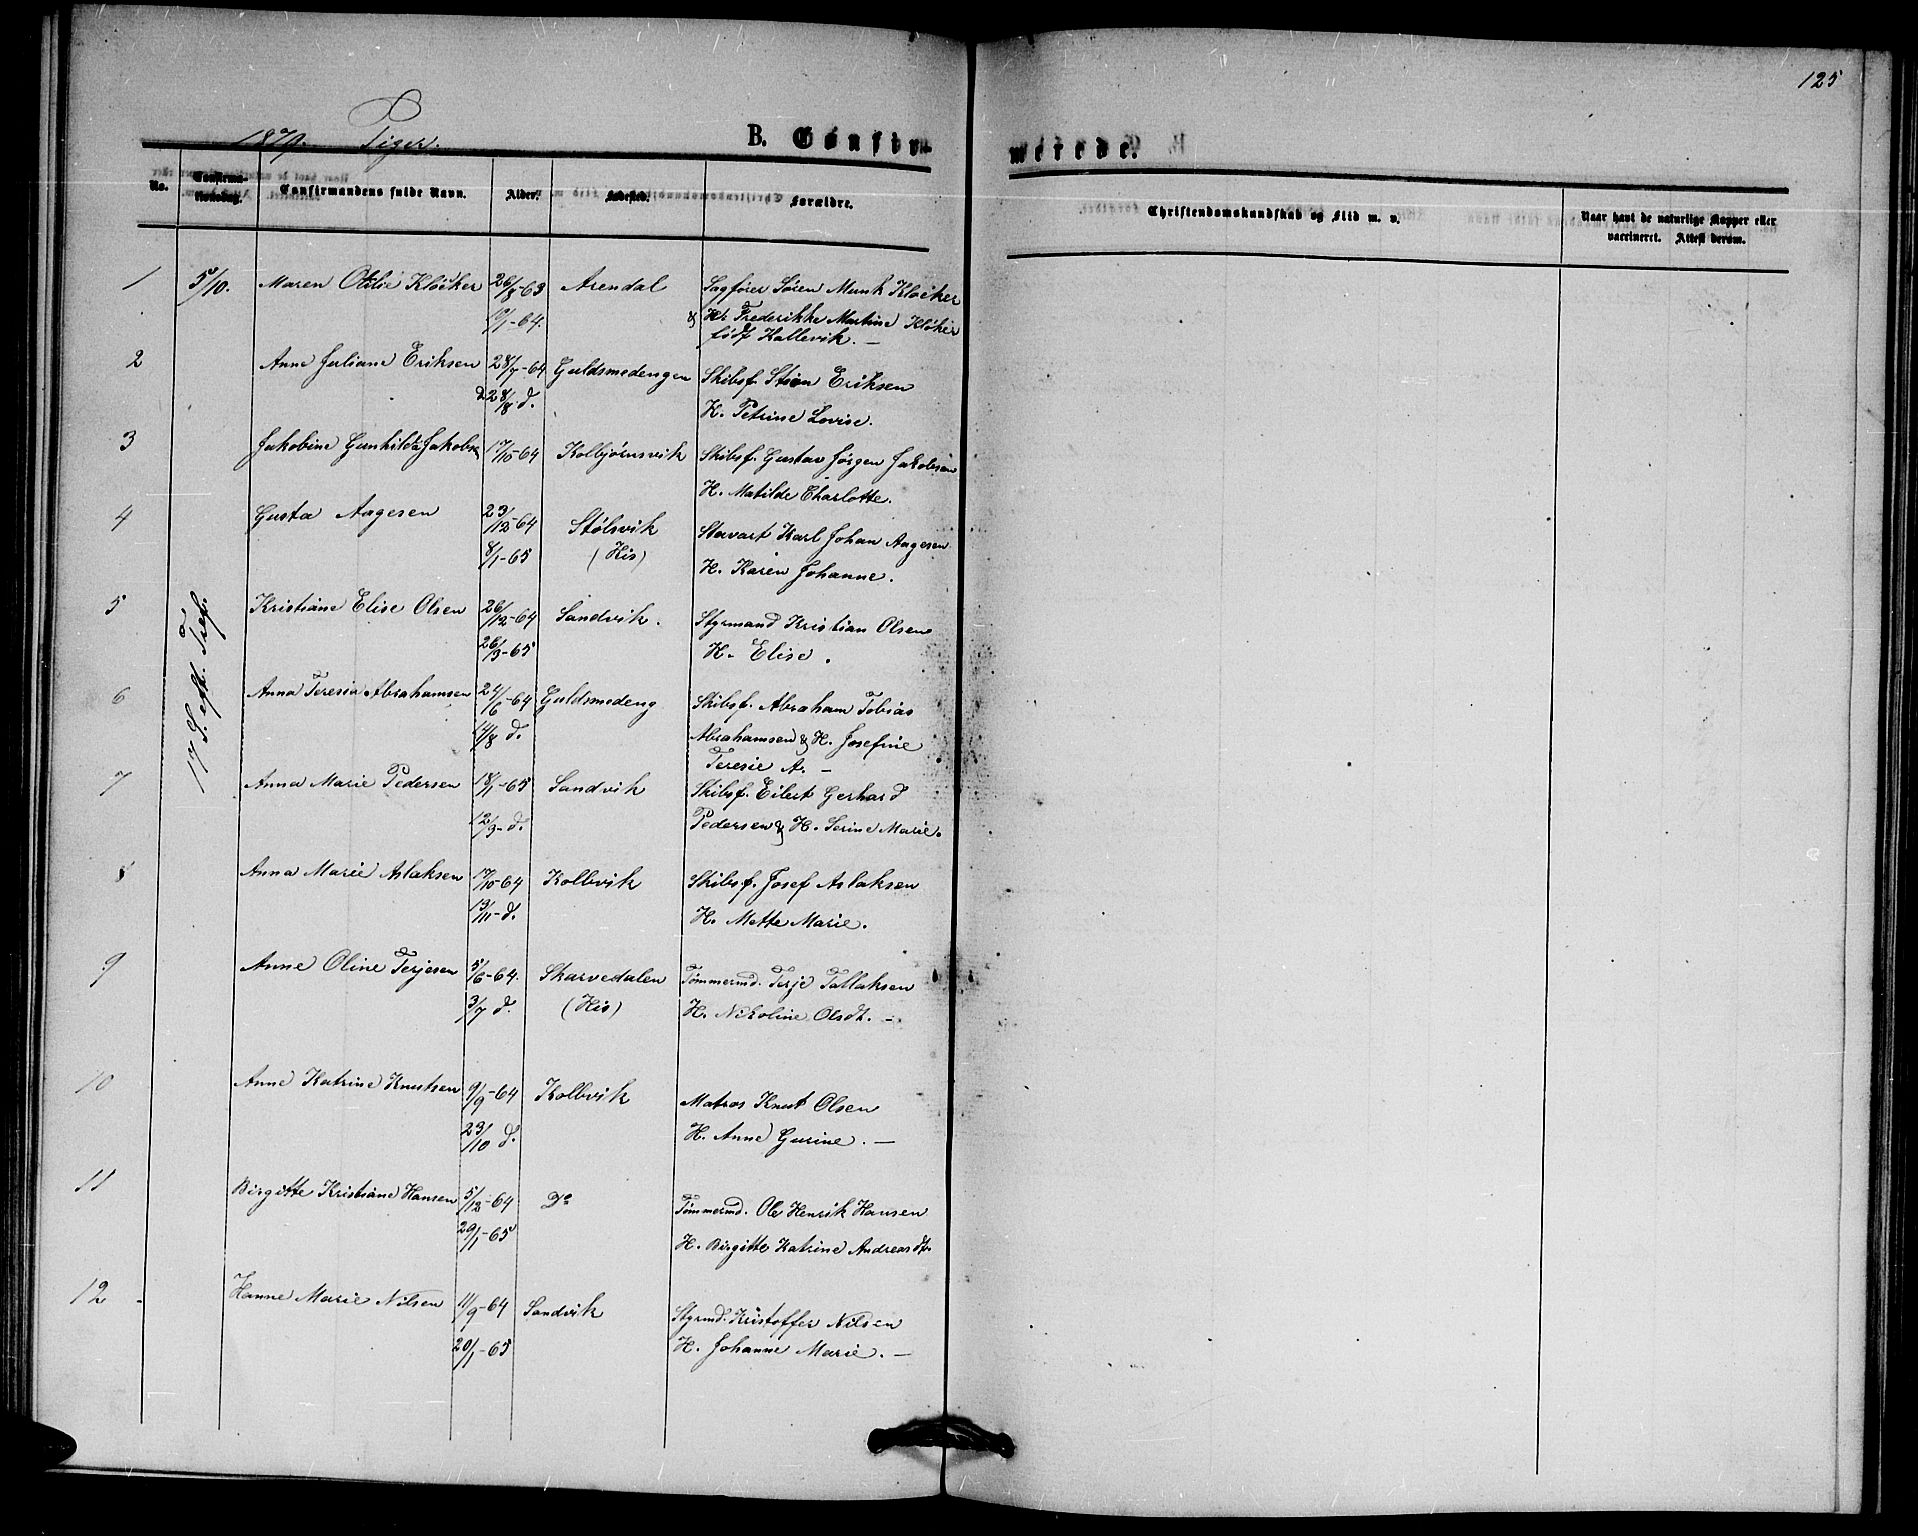 125
1879. Piger.
B. Confirmerede.
No.
Confirmationsdag.
Confirmandens fulde Navn.
Alder.
Fødested.
Forældre.
Christendomskundskab og Flid m. v.
Naar havt de naturlige Kopper eller
vaccineret. Attest derom.
17 S. eft. Tref.
1 5/10. Maren Otilie Kløcker 26/8-63 Arendal Sagfører Søren Munk Kløcker
10/1-64. & H. Frederikke Martine Kløker
født Kallevik. —
2 Anne Juliane Eriksen 28/7-64 Guldsmedengen Skibsf. Stian Eriksen
d. 28/8 d. H. Petrine Lovise.
3 Jakobine Gunhilda Jakobs 17/10-64 Kolbjørnsvik Skibsf. Gustav Jørgen Jakobsen
H. Matilde Charlotte.
4 Gusta Aagesen 23/12-64 Stølsvik Stuvart Karl Johan Aagesen
8/1-65 (His) H. Karen Johanne.
5 Kristiane Elise Olsen 26/12-64 Sandvik. Styrmand Kristian Olsen
26/3-65 H. Elise.
6 Anna Teresia Abrahamsen 24/6-64 Guldsmedeng Skibsf. Abraham Tobias
14/8 d. Abrahamsen & H. Josefine
Teresie A. —
7 Anna Marie Pedersen 18/1-65 Sandvik Skibsf. Eilert Gerhard
12/3- d. Pedersen & H. Serine Marie.
8 Anna Marie Aslaksen 17/10-64 Kolbvik Skibsf. Josef Aslaksen
13/11- d. H. Mette Marie.
9 Anne Oline Terjesen 5/6-64. Skarvedalen Tømmermd. Terje Tallaksen
3/7 d. (His) H. Nikoline Olsdt. —
10 Anne Katrine Knutsen 9/9-64 Kolbvik Matros Knut Olsen
23/10 d. H. Anne Gurine. —
11 Birgitte Kristiane Hansen 5/12-64 Do Tømmermd. Ole Henrik Hansen
29/1-65 H. Birgitte Katrine Andreasdtr
12 Hanne Marie Nilsen 11/9-64 Sandvik Styrmd. Kristoffer Nilsen
20/1-65 H. Johanne Marie. —